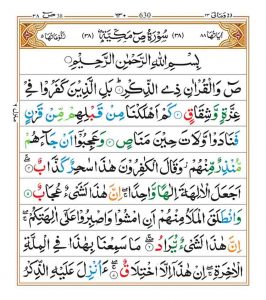 ٣٨ ص 38 ٦٣٠ 630 ٢٣
اٰيَاتُهَا ٨٨ (٣٨) سُوْرَةُ صٓ مَكِّيَّةٌ (٣٨) رُكُوْعَاتُهَا ٥
بِسْمِ اللّٰهِ الرَّحْمٰنِ الرَّحِيْمِ
صٓ وَالْقُرْاٰنِ ذِى الذِّكْرِ بَلِ الَّذِيْنَ كَفَرُوْا فِىْ
عِزَّةٍ وَّشِقَاقٍ كَمْ اَهْلَكْنَا مِنْ قَبْلِهِمْ مِّنْ قَرْنٍ
فَنَادَوْا وَّلَاتَ حِيْنَ مَنَاصٍ وَعَجِبُوْٓا اَنْ جَآءَهُمْ
مُّنْذِرٌ مِّنْهُمْ وَقَالَ الْكٰفِرُوْنَ هٰذَا سٰحِرٌ كَذَّابٌ
اَجَعَلَ الْاٰلِهَةَ اِلٰهًا وَّاحِدًا اِنَّ هٰذَا لَشَىْءٌ عُجَابٌ
وَانْطَلَقَ الْمَلَاُ مِنْهُمْ اَنِ امْشُوْا وَاصْبِرُوْا عَلٰٓى اٰلِهَتِكُمْ
اِنَّ هٰذَا لَشَىْءٌ يُّرَادُ مَا سَمِعْنَا بِهٰذَا فِى الْمِلَّةِ
الْاٰخِرَةِ اِنْ هٰذَآ اِلَّا اخْتِلَاقٌ ءَاُنْزِلَ عَلَيْهِ الذِّكْرُ